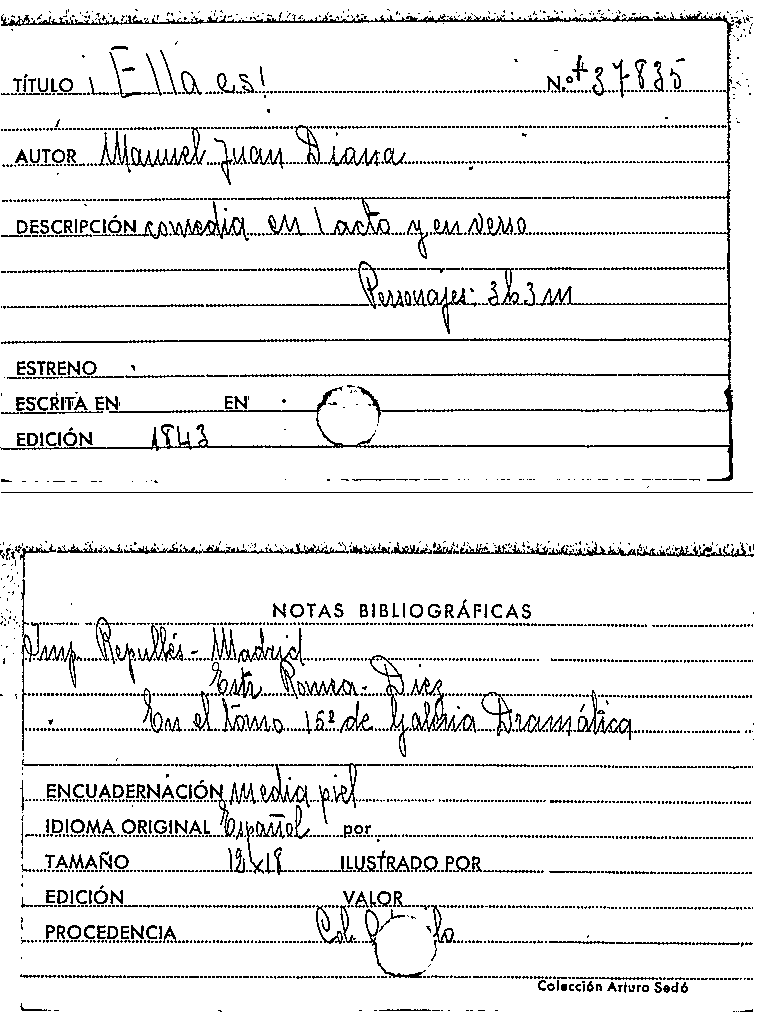 TÍTULO ¡Ella es! N.º +37835
AUTOR Manuel Juan Diana
DESCRIPCIÓN comedia en 1 acto y en verso
Personajes: 3h 3m
ESTRENO
ESCRITA EN EN
EDICIÓN 1843
NOTAS BIBLIOGRÁFICAS
Imp. Repullés - Madrid
Estr Romea - Diez
En el tomo 15º de Galería Dramática
ENCUADERNACIÓN media piel
IDIOMA ORIGINAL Español por
TAMAÑO 12x18 ILUSTRADO POR
EDICIÓN VALOR
PROCEDENCIA Col.
Colección Arturo Sedó